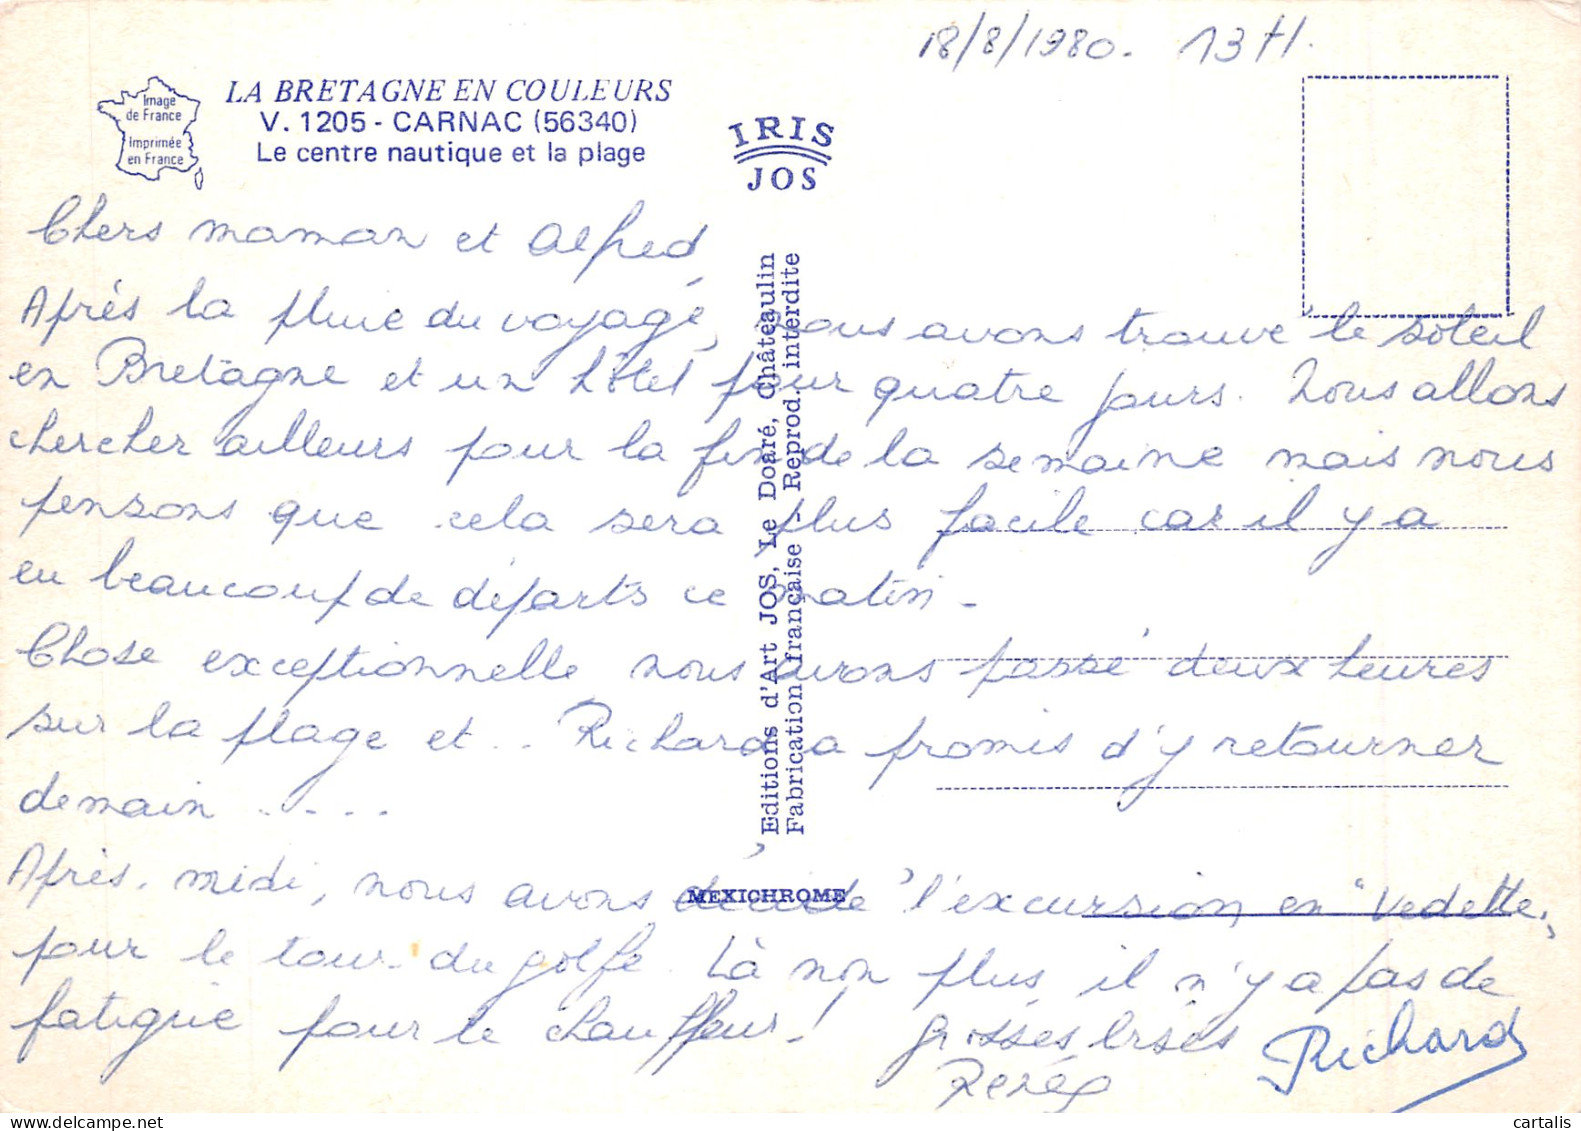 18/8/1980. 13H.
LA BRETAGNE EN COULEURS
V. 1205 - CARNAC (56340)
Le centre nautique et la plage
Image
de France
Imprimée
en France
IRIS
JOS
Chers maman et Alfred
Après la pluie du voyage, nous avons trouvé le soleil
en Bretagne et un hôtel pour quatre jours. Nous allons
chercher ailleurs pour la fin de la semaine mais nous
pensons que cela sera plus facile car il y a
eu beaucoup de départs ce matin.
Chose exceptionnelle nous avons passé deux heures
sur la plage et .. Richard a promis d'y retourner
demain . . . .
Après-midi, nous avons décidé l'excursion en "Vedette"
pour le tour du golfe. Là non plus, il n'y a pas de
fatigue pour le chauffeur! Grosses bises Richard
Renée
Editions d'Art JOS, Le Doaré, Châteaulin
Fabrication française - Reprod. interdite
MEXICHROME
cartalis
delcampe.net